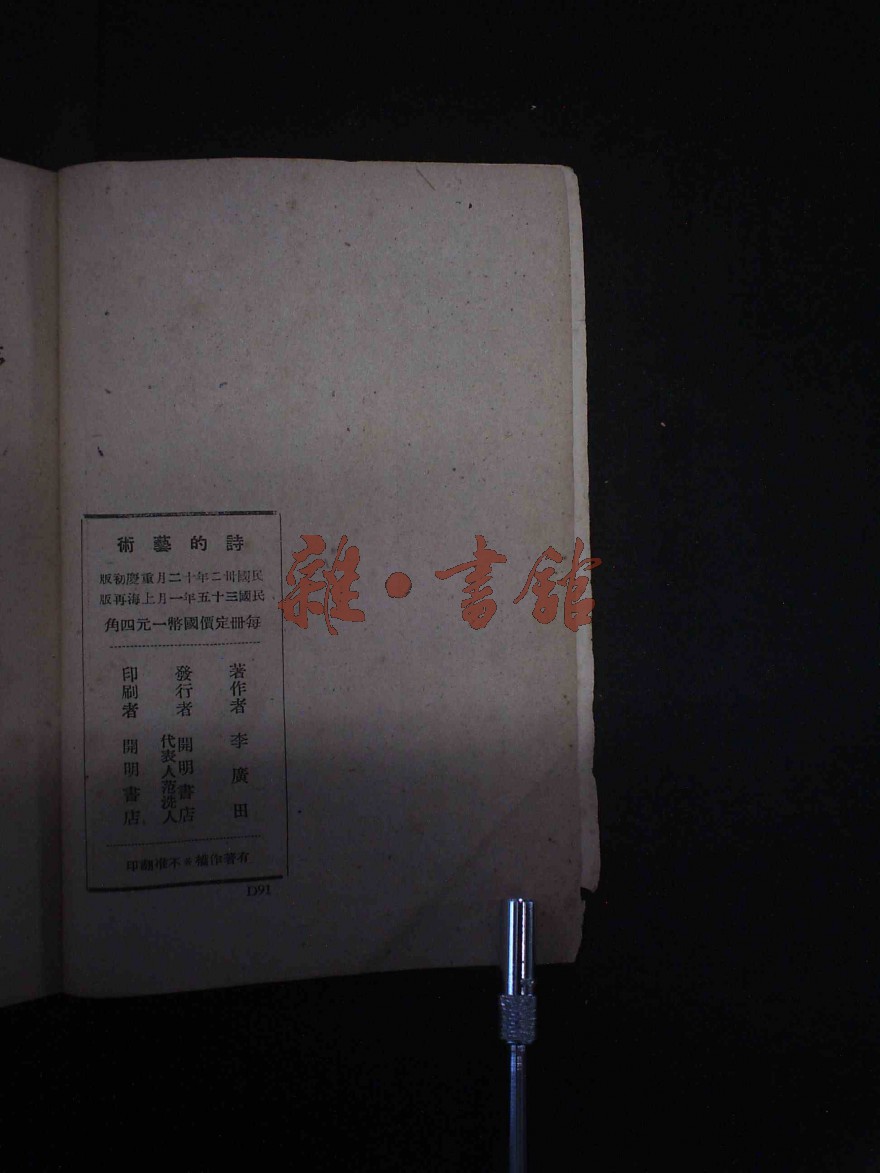 詩的藝術
民國卅二年十二月重慶初版
民國三十五年一月上海再版
每冊定價國幣一元四角
著作者 李廣田
發行者 開明書店
代表人范洗人
印刷者 開明書店
有著作權＊不准翻印
D91
雜·書館